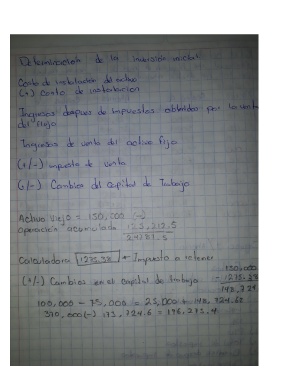 Determinación de la inversión inicial
Costo de instalación del activo
(+) Costo de instalación
Ingresos despues de impuestos obtenidos por la venta
del flujo
Ingresos de venta del activo fijo
(+/-) impuesto de venta
(+/-) Cambios del Capital de Trabajo
Activo viejo = 150,000 (-)
operación acumulada 125,212.5
Calculadora 1275.38 ← Impuesto a retener
150,000
- 1275.38
(+/-) Cambios en el capital de trabajo
148,724
100,000 - 75,000 = 25,000 + 148,724.60
370,000 (-) 173,724.6 = 196,275.4